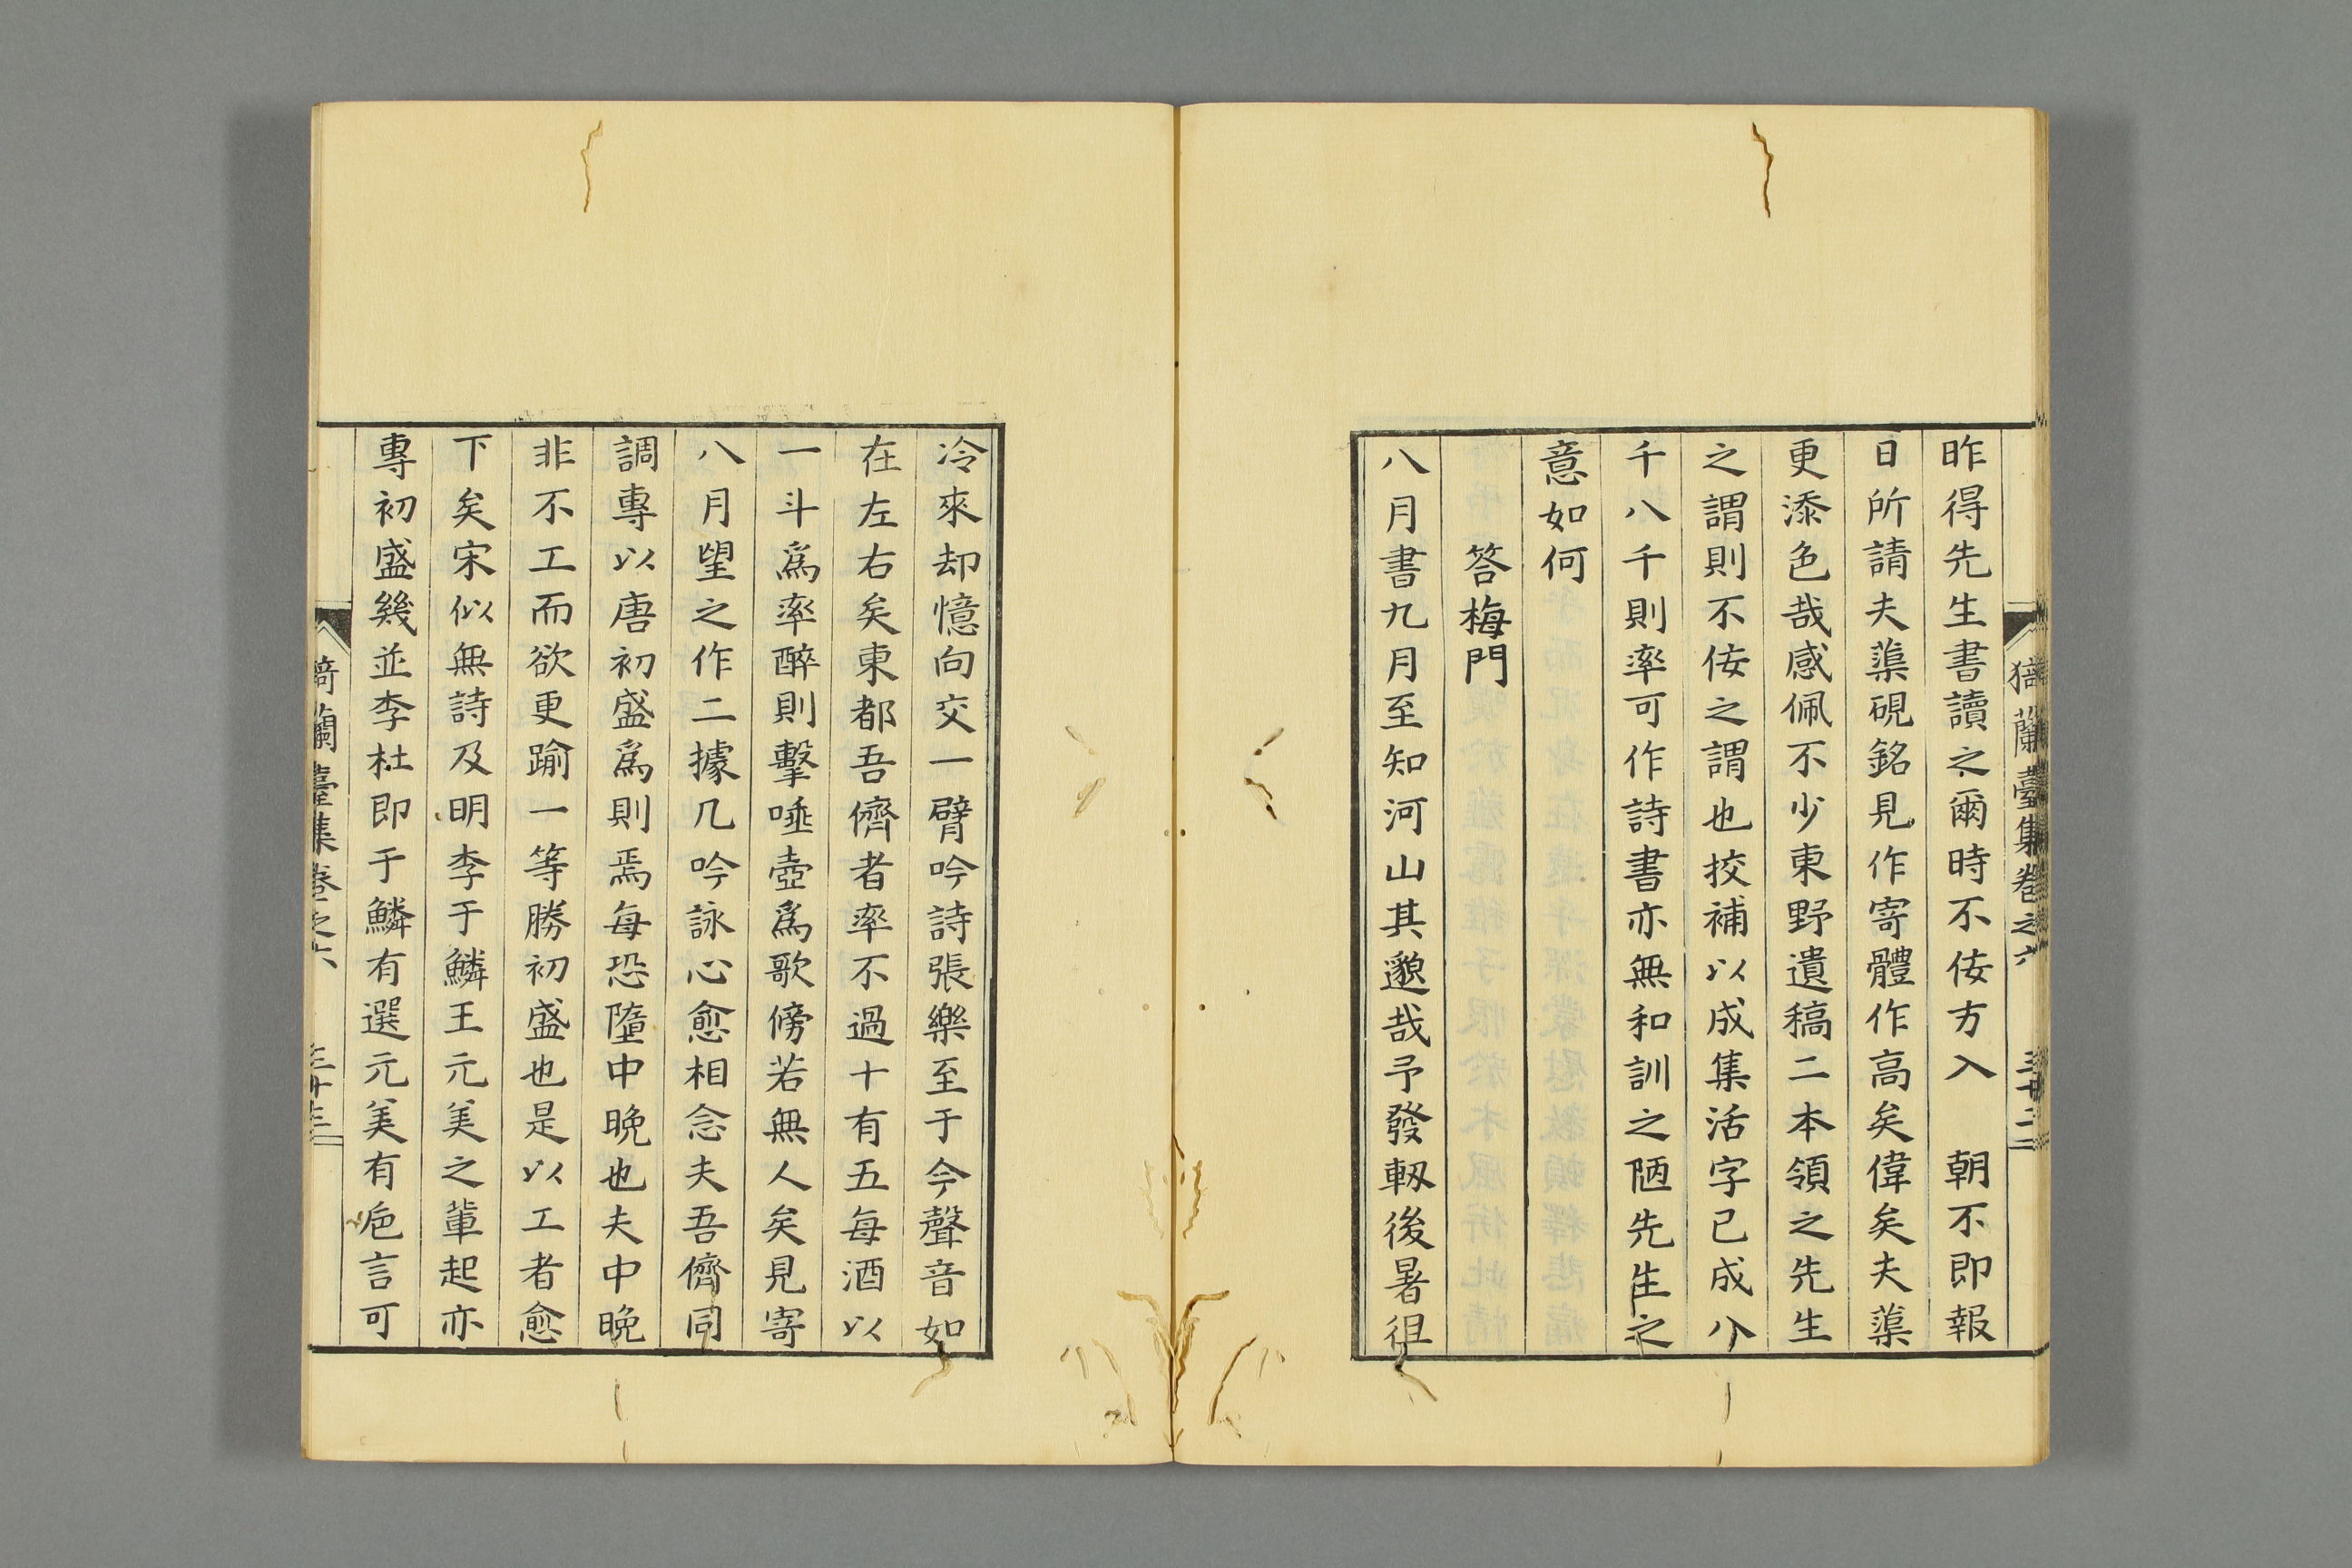 猗蘭臺集卷之六 三十二
昨得先生書讀之爾時不佞方入 朝不即報
日所請夫蕖硯銘見作寄體作高矣偉矣夫蕖
更添色哉感佩不少東野遺稿二本領之先生
之謂則不佞之謂也挍補以成集活字已成八
千八千則率可作詩書亦無和訓之陋先生之
意如何
答梅門
八月書九月至知河山其邈哉予發軔後暑徂
冷來却憶向交一臂吟詩張樂至于今聲音如
在左右矣東都吾儕者率不過十有五每酒以
一斗爲率醉則擊唾壺爲歌傍若無人矣見寄
八月望之作二據几吟詠心愈相念夫吾儕同
調專以唐初盛爲則焉每恐墮中晚也夫中晚
非不工而欲更踰一等勝初盛也是以工者愈
下矣宋似無詩及明李于鱗王元美之輩起亦
專初盛幾並李杜即于鱗有選元美有巵言可
猗蘭臺集卷之六 三十三